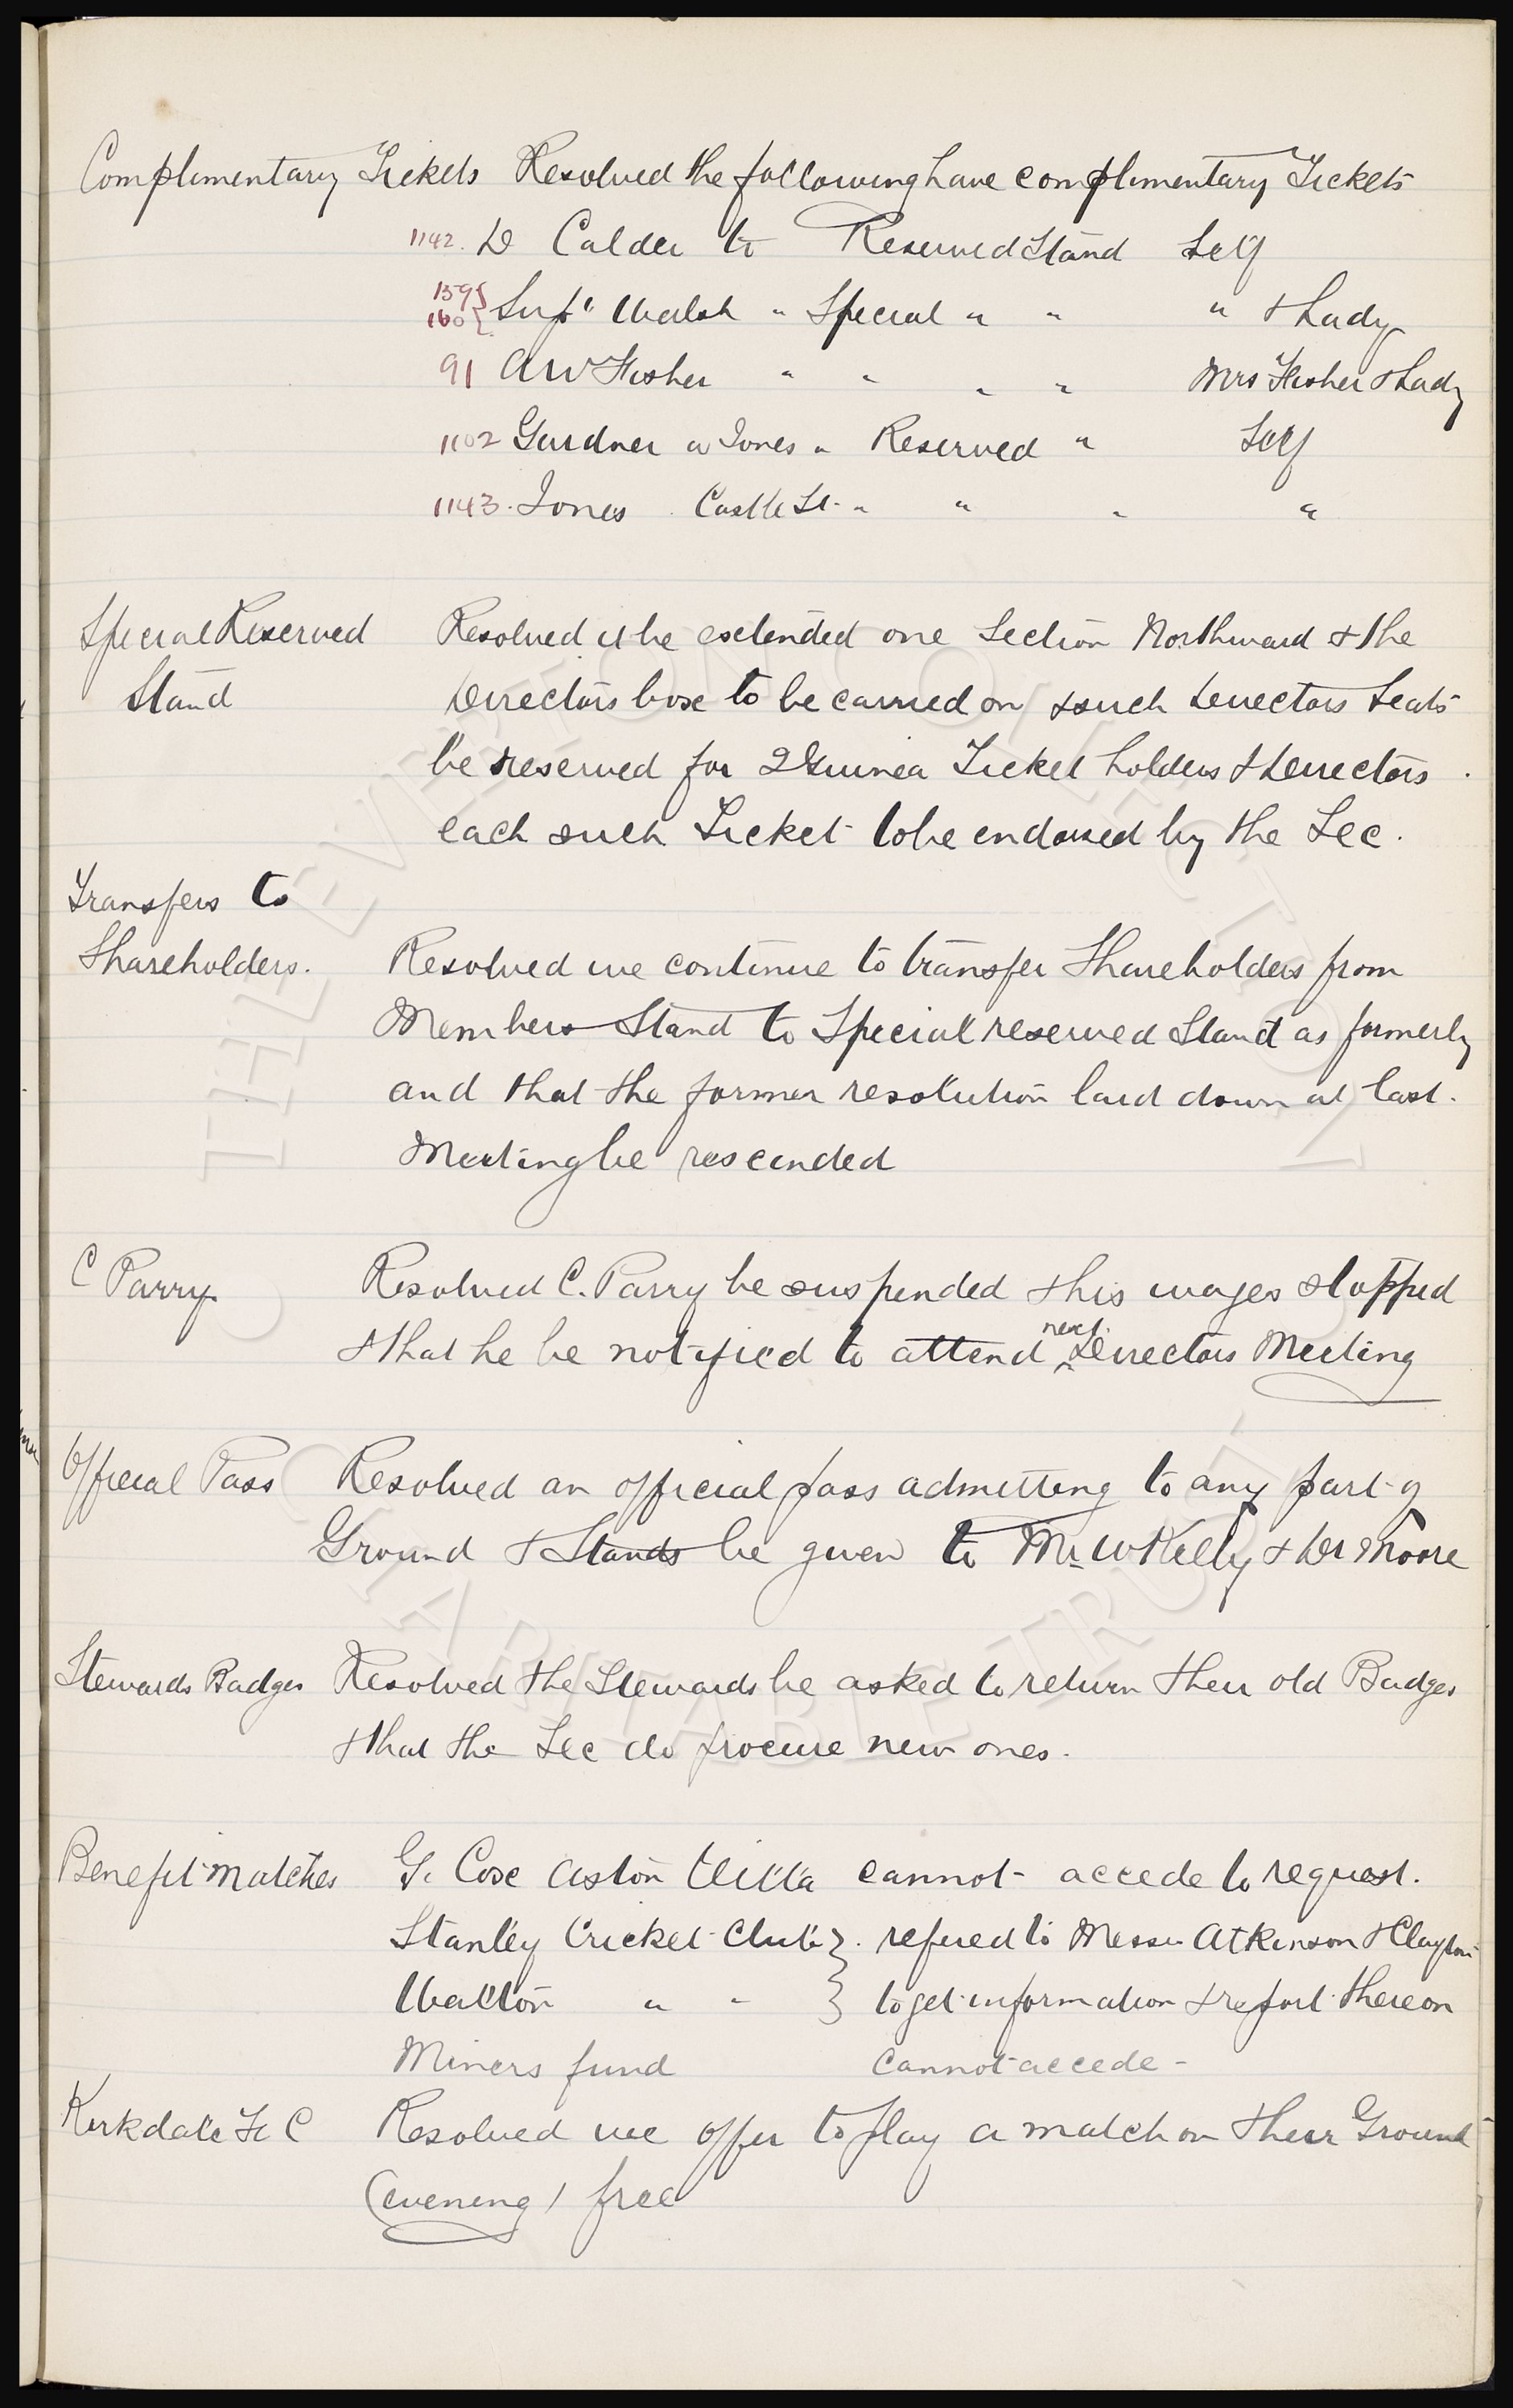 Complimentary Tickets Resolved the following have complimentary Tickets
1142. D Calder to Reserved Stand Self
159 } Supt Walsh " Special " " " & Lady
160 }
91 A W Fisher " " " " Mrs Fisher & Lady
1102 Gardner Jones " Reserved " Self
1143. Jones Castle St. " " " "
Special Reserved Resolved it be extended one Section Northward & the
Stand Directors box to be carried on & such Directors Seats
be reserved for 2 Guinea Ticket holders & Directors.
each such Ticket to be endorsed by the Sec.
Transfers to
Shareholders. Resolved we continue to transfer Shareholders from
Members Stand to Special reserved Stand as formerly
and that the former resolution laid down at last
Meeting be rescinded
C Parry. Resolved C. Parry be suspended & his wages stopped
& that he be notified to attend next Directors Meeting
Official Pass Resolved an official pass admitting to any part of
Ground & Stands be given to Mr W Kelly & Dr Moore
Stewards Badges Resolved the Stewards be asked to return their old Badges
& that the Sec do procure new ones.
Benefit Matches G. Cox Aston Villa cannot accede to request.
Stanley Cricket Club } refered to Messrs Atkinson & Clayton
Walton " " } to get information & report thereon
Miners fund cannot accede -
Kirkdale F C Resolved we offer to play a match on their Ground
(evening) free
THE EVERTON COLLECTION
CHARITABLE TRUST